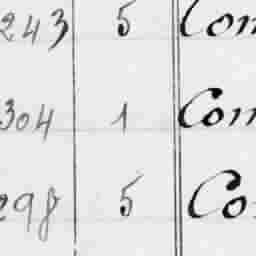 243 5 Com
304 1 Com
298 5 Co